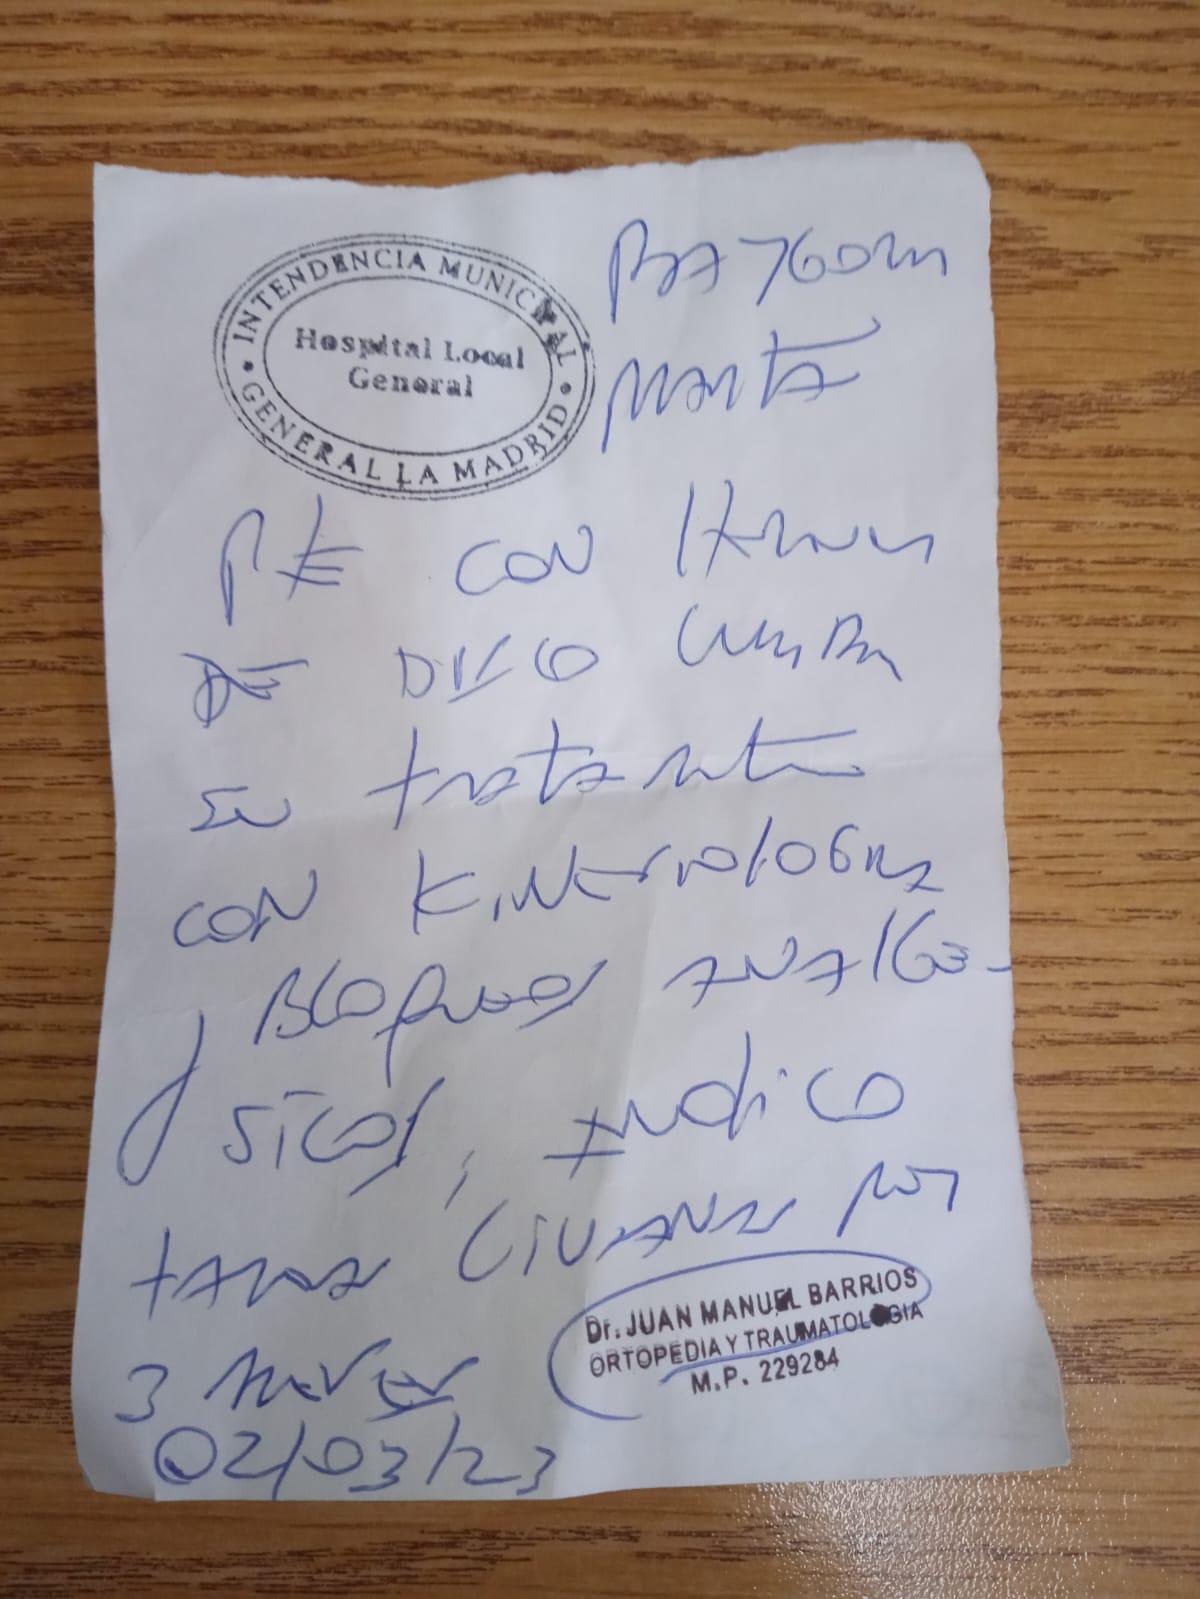 INTENDENCIA MUNICIPAL
Hospital Local
General
GENERAL LA MADRID
MARTA
PTE CON HERNIA
DE DISCO LUMBAR
EN tratamiento
CON KINESIOLOGIA
y BLOQUEOS ANALGE-
SICOS, INDICO
TAREA LIVIANA POR
3 MESES
Dr. JUAN MANUEL BARRIOS
ORTOPEDIA Y TRAUMATOLOGIA
M.P. 229284
02/03/23